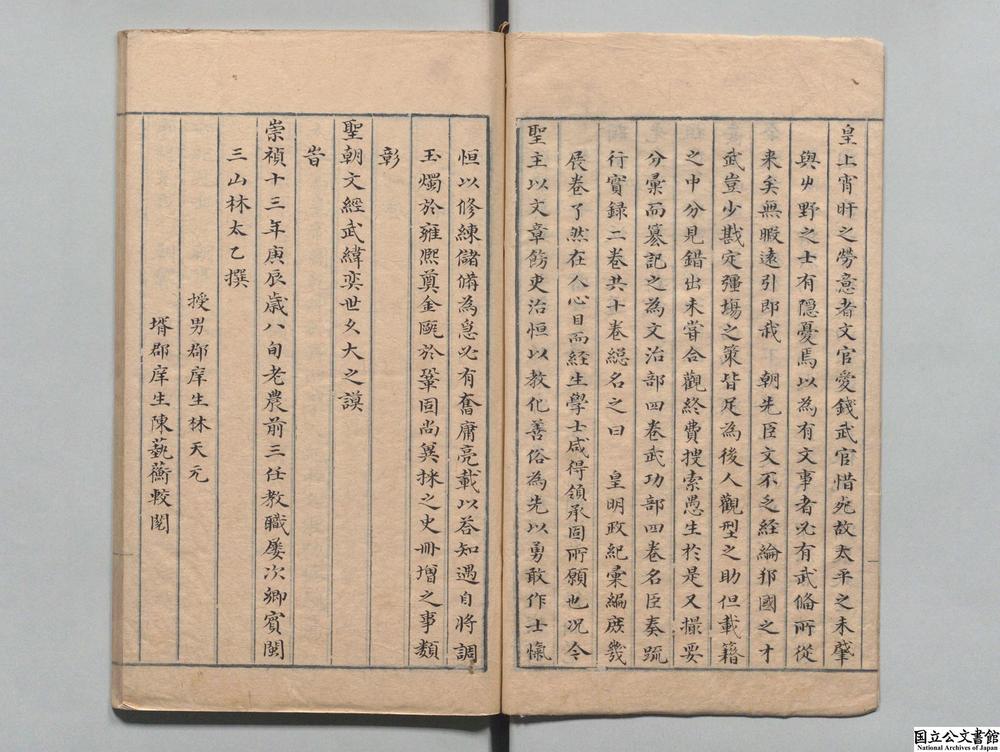 皇上宵旰之勞意者文官愛錢武官惜死故太平之未肇
與艸野之士有隱憂焉以為有文事者必有武俻所從
来矣無暇遠引即我 朝先臣文不乏経綸邦國之才
武豈少戡定彊場之策皆足為後人觀型之助但載籍
之中分見錯出未甞合觀終費搜索愚生於是又撮要
分彙而纂記之為文治部四卷武功部四卷名臣奏疏
行實録二卷共十卷総名之曰 皇明政紀彙編庻幾
展卷了然在人心目而経生學士咸得領承固所願也况今
聖主以文章飭吏治恒以教化善俗為先以勇敢作士愾
恒以修練儲備為急必有奮庸亮載以荅知遇自將調
玉燭於雍熈奠金甌於鞏固尚兾採之史冊増之事類
彰
聖朝文経武緯奕世久大之謨
旹
崇禎十三年庚辰歳八旬老農前三任教職屡次鄉賓閩
三山林太乙撰
授男郡庠生林天元
壻郡庠生陳藝蘅較閲
国立公文書館
National Archives of Japan